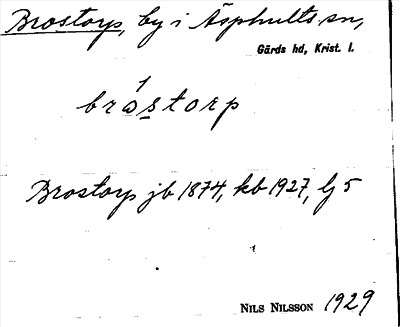 Brostorp, by i Äsphults sn,
Gärds hd, Krist. l.
bråstorp
Brostorp jb 1874, kb 1927, lj 5
NILS NILSSON 1929